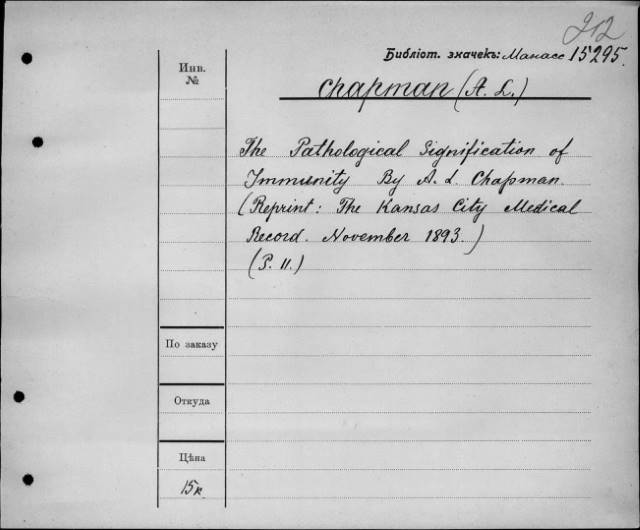 212
Библіот. значекъ: Манасс 15295.
Инв.
№
Chapman (A. L.)
The Pathological Signification of
Immunity By A. L. Chapman.
(Reprint: The Kansas City Medical
Record. November 1893.)
(P. 11.)
По заказу
Откуда
Цѣна
15к